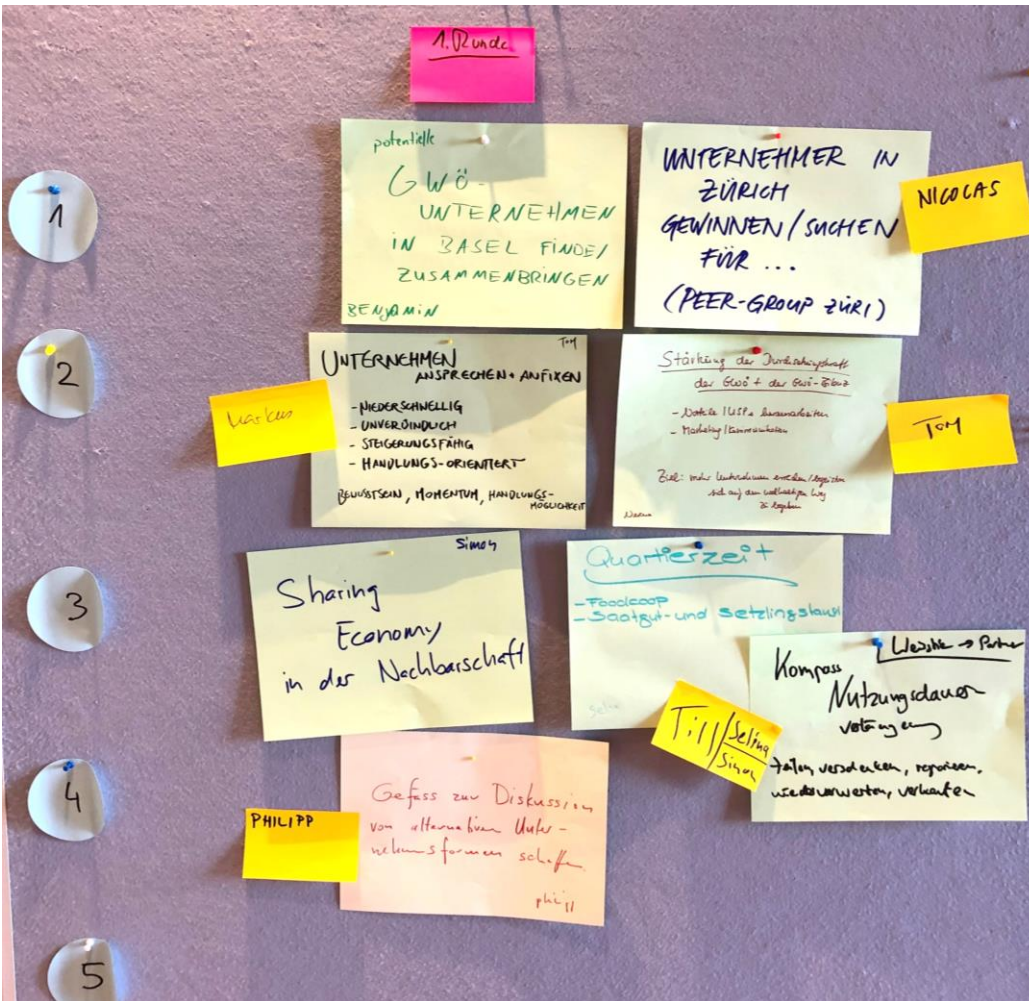 1. Runde
1
potentielle
GWÖ-
UNTERNEHMEN
IN BASEL FINDE/
ZUSAMMENBRINGEN
BENJAMIN
UNTERNEHMER IN
ZÜRICH
GEWINNEN/SUCHEN
FÜR ...
(PEER-GROUP ZÜRI)
NICOLAS
2
Markus
TOM
UNTERNEHMEN
ANSPRECHEN + ANFIXEN
- NIEDERSCHWELLIG
- UNVERBINDLICH
- STEIGERUNGSFÄHIG
- HANDLUNGS-ORIENTIERT
BEWUSSTSEIN, MOMENTUM, HANDLUNGS-
MÖGLICHKEIT
Stärkung der Durchsetzungskraft
der GWÖ + der GWÖ-Bilanz
- Vorteile / USPs herausarbeiten
- Marketing/Kommunikation
Ziel: mehr Unternehmen erreichen/begeistern
sich auf den Weg
zu begeben
TOM
3
Simon
Sharing
Economy
in der Nachbarschaft
Quartierzeit
- Foodcoop
- Saatgut- und Setzlingstausch
Till/Selina
Simon
Website → Partner
Kompass
Nutzungsdauer
teilen, verschenken, reparieren,
wiederverwerten, verkaufen
4
PHILIPP
Gefäss zur Diskussion
von alternativen Unter-
nehmensformen schaffen
5